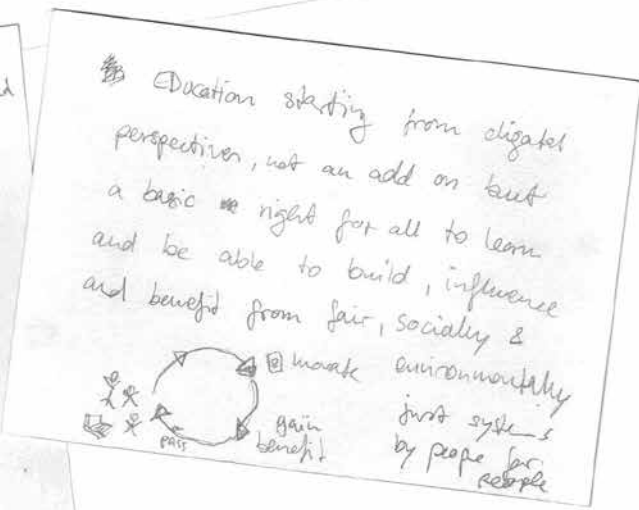 Education starting from digatel
perspectives, not an add on but
a basic right for all to learn
and be able to build, influence
and benefit from fair, socially &
environmentally
just systems
by peope for
people
inovate
gain
benefit
pass